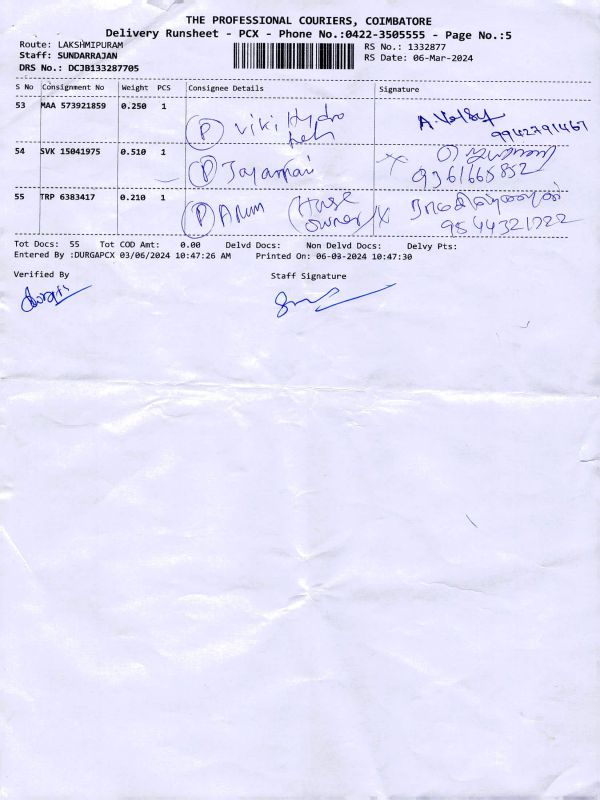 THE PROFESSIONAL COURIERS, COIMBATORE
Delivery Runsheet - PCX - Phone No.:0422-3505555 - Page No.:5
Route: LAKSHMIPURAM RS No.: 1332877
Staff: SUNDARRAJAN RS Date: 06-Mar-2024
DRS No.: DCJB133287705
S No Consignment No Weight PCS Consignee Details Signature
53 MAA 573921859 0.250 1 (P) Viki Hydro
9942791467
54 SVK 15041975 0.510 1 (P)
9361665852
55 TRP 6383417 0.210 1 (P) Arun (House
owner)
9544321722
Tot Docs: 55 Tot COD Amt: 0.00 Delvd Docs: Non Delvd Docs: Delvy Pts:
Entered By :DURGAPCX 03/06/2024 10:47:26 AM Printed On: 06-03-2024 10:47:30
Verified By Staff Signature